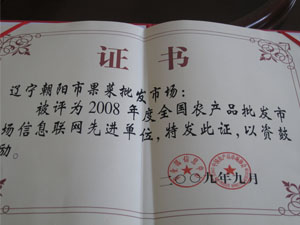 证书
辽宁朝阳市果菜批发市场：
被评为2008年度全国农产品批发市
场信息联网先进单位，特发此证，以资鼓
励。
二〇〇九年九月